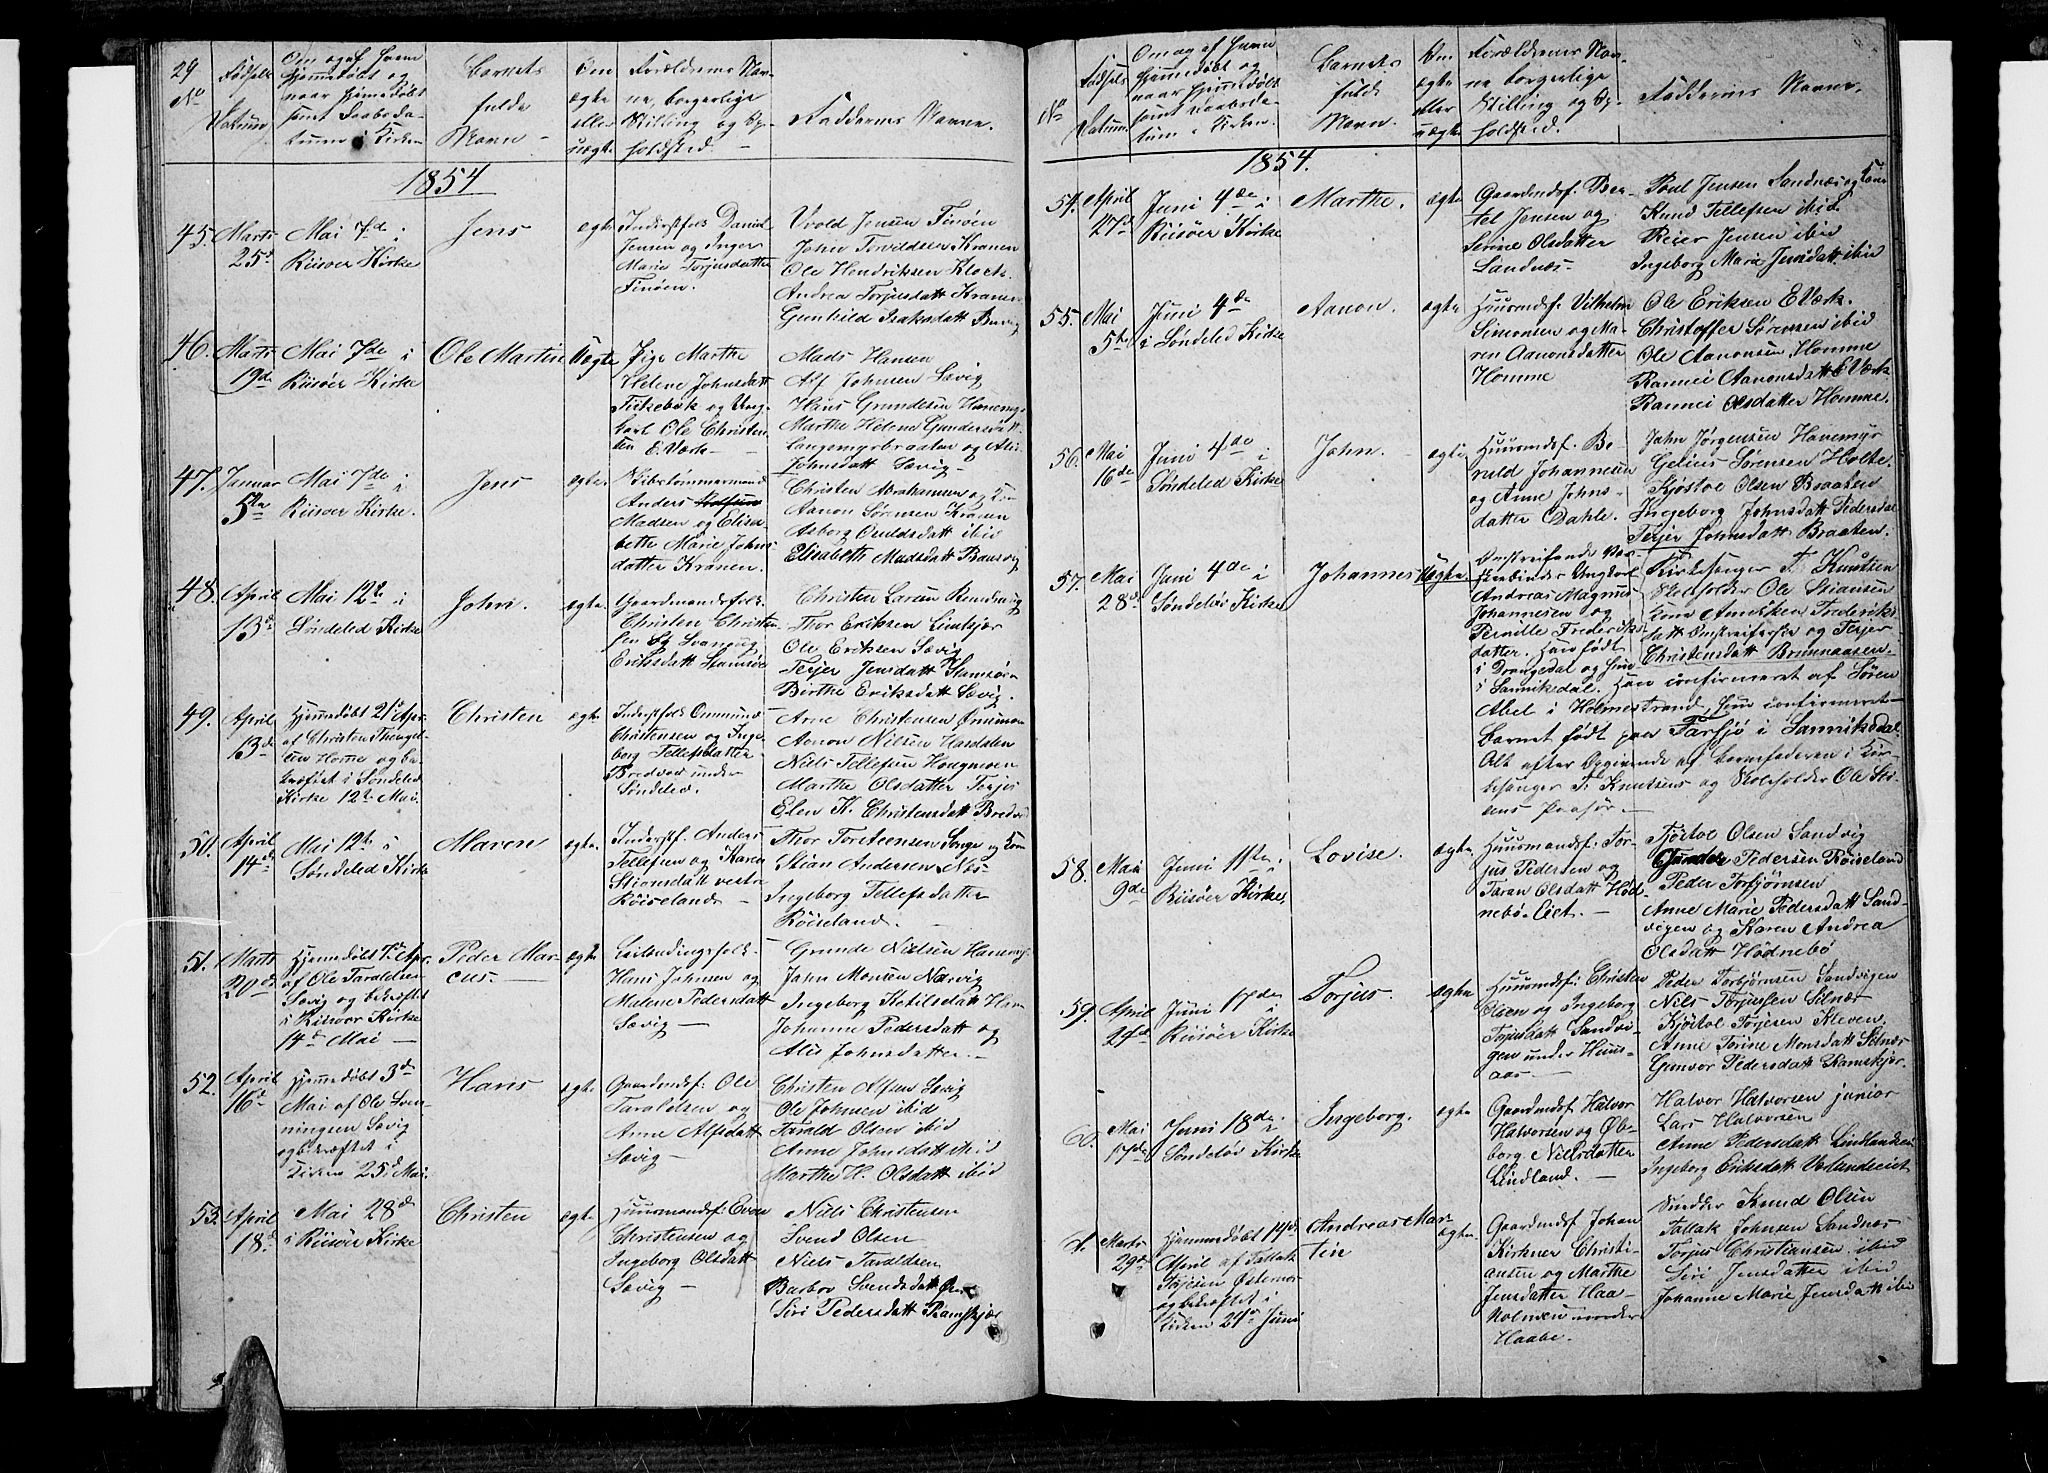 29
No
Fødsels
Datum
Om og af hvem
hjemmedøbt og
naar hjemmedøbt
samt Daabsda-
tum i Kirken
Barnets
fulde
Navn
Om
ægte
eller
uægte
Forældrenes Nav-
ne, borgerlige
Stilling og Op-
holdsted.
Faddernes Navne.
1854
45. Marts
25d
Mai 7d i
Riisøer Kirke
Jens
ægte
Inderstfolk Daniel
Jensen og Inger
Marie Torjusdatter
Finøen.
Jensen Finøen
John Kranen
Ole Hendriksen
Andrea Torjusdatt Kranen
Gunhild Isaksdatt
46. Marts
19de
Mai 7de i
Riisøer Kirke
Ole Martin
Uægte
Pige Marthe
Helene Johnsdatt
og Ung-
karl Ole Christen-
sen E. Værk
Mads Hansen
Alf Johnsen Savig
Hans Grundesen Hanemyr
Marthe Helene Gundersdatt
Langemyrbraaten og Alis
Johnsdatt Savig
47. Januar
5te
Mai 7de i
Riisøer Kirke.
Jens
ægte.
Skibstømmermand
Anders
Madsen og Elisa-
beth Marie Johns-
datter Kranen.
Christen Abrahamsen og Kone
Aanon Sørensen Kranen
Asborg datt ibid
Elisabeth Madsdatt
48. April
13d
Mai 12te i
Søndeled Kirke
John.
ægte.
Gaardmandsfolk
Christen Christen-
sen og
Eriksdatt Stamsøe
Christen Larsen
Thor Eriksen
Ole Eriksen Sævig
Terjer Jensdatt Stamsøen
Birthe Eriksdatt Savig.
49. April
13de
Hjemmedøbt 21d Apr.
af Christen Thengel-
sen Home og be-
kræftet i Søndeled
Kirke 12te Mai.
Christen
ægte
Inderstfolk Ommund
Christensen og Inge-
borg Tellefsdatter
under
Søndeled.
Arne Christensen
Aanon Nilsen Hasdalen
Niels Tellefsen Hougmoen
Marthe Olsdatter
Elen K. Christensdatt
50. April
14de
Mai 12te i
Søndeled Kirke
Maren
ægte.
Inderstf. Anders
Tellefsen og Karen
Stiansdatt vestre
Røiseland
Thor Torstensen Songe og Kone
Stian Andersen Næs
Ingeborg Tellefsdatter
Røiseland.
51. Marts
20de
Hjemmedøbt 7d Apr.
af Ole Taraldsen
Savig og bekræftet
i Riisøer Kirke
14d Mai
Peder Mar-
cus.
ægte
Hans Johnsen og
Malene Pedersdatt
Savig
Grunde Nielsen Hanemyr
John Monsen
Ingeborg Ketilsdatt
Johanne Pedersdatt og
Alis Johnsdatter.
52. April
16d
Hjemmedøbt 3de
Mai af Ole Sven-
ningsen Savig
og bekræftet i
Kirken 25d Mai.
Hans
ægte
Gaardmdsf: Ole
Taraldsen og
Anne Alfsdatt
Savig
Christen Alfsen Savig
Ole Johnsen ibid
Tarald Olsen ibid
Anne Johnsdatt ibid
Marthe H. Olsdatt ibid
53. April
18d
Mai 28de
i Riisøer Kirke
Christen
ægte
Huusmandsf: Even
Christensen og
Ingeborg Olsdatt
Savig
Niels Christensen
Svend Olsen
Niels Taraldsen
Barbro Svendsdatt
Siri Pedersdatt Ramskjær
No
Fødsels
Datum
Om og af hvem
hjemmedøbt og
naar hjemmedøbt
samt Daabsda-
tum i Kirken.
Barnets
fulde
Navn.
Om
ægte
eller
uægte
Forældrenes Nav-
ne, borgerlige
Stilling og Op-
holdsted.
Faddernes Navne.
1854.
54. April
27d
Juni 4de i
Riisøer Kirke
Marthe.
ægte
Gaardmdsf. Ber-
tel Jensen og
Serine Olsdatter
Sandnæs.
Poul Jensen Sandnæs og Kone
Knud Tellefsen ibid
Reier Jensen ibid
Ingeborg Marie Jensdatt. ibid
55. Mai
5te
Juni 4de
i Søndeled Kirke
Aanon.
ægte
Huusmdsf: Vilhelm
Simonsen og Ma-
ren Aanonsdatter
Homme
Ole Eriksen E.Værk.
Christoffer Sørensen ibid
Ole Aanonsen Homme
Rannei Aanonsdatt E Værk
Rannei Olsdatter Homme.
56. Mai
16de
Juni 4de i
Søndeled Kirke
John.
ægte
Huusmdsf. Be-
ruld Johannesen
og Anne Johns-
datter Dahle.
John Jørgensen Hanemyr
Gelius Sørensen Holte.
Kjøstol Olsen Braaten
Ingeborg Johnsdatt Pedersdal
Terjer Johnsdatt Braaten.
57. Mai
28d
Juni 4de i
Søndeled Kirke
Johannes
Uægte
Omstreifende
Ungkarl
Andreas Magnus
Johannesen og
Pernille Frederiks-
datter. Han født
i Drangedal og hun
i Sannikedal. Han confirmeret af Søren
Abel i Holmestrand, hun confirmeret
Barnet født paa Tarsjø i Sannikedal
Alt efter Opgivende af Barnefaderen i Kir-
kesanger T. Knutsens og Skoleholder Ole Sti-
ansens
Kirkesanger T. Knutsen
Skoleholder Ole Stiansen
Kone Frederiks-
datt Omstreiferske og Terjer
Christensdatt Brunnaasen
58. Mai
9de
Juni 11te i
Riisøer Kirke.
Lovise.
ægte
Huusmandsf: Tor-
jus Pedersen og
Taran Olsdatt Hød-
nebø.
Tjøstol Olsen Sandvig
Pedersen Røiseland
Peder Torbjørnsen
Anne Marie Pedersdatt Sand-
vigen og Karen Andrea
Olsdatt Hødnebø
59. April
24de
Juni 17de i
Riisøer Kirke
Torjus.
ægte
Huusmdsf: Christen
Olsen og Ingeborg
Torjusdatt Sandvi-
gen under Huus-
aas
Peder Torbjørnsen Sandvigen
Nils Torjussen
Kjøstol Torjesen Kleven.
Anne Torine Monsdatt
Gunvor Pedersdatt Ramskjær.
60. Mai
17de
Juni 18de i
Søndeled Kirke
Ingeborg.
ægte
Gaardmdsf Halvor
Halvorsen og
Nielsdatter
Lindland.
Halvor Halvorsen junior
Lars Halvorsen
Anne Pedersdatt
Ingeborg Eriksdatt
Marts
29de
Hjemmedøbt 14de
April af Tallak
Østerno
og bekræftet i
Kirken 24de Juni
Andreas Mar-
tin
ægte
Gaardmdsf Johan
Kirkner Christi-
ansen og Marthe
Jensdatter Haa-
holmen under
Haabe.
Knud Olsen
Tallak Johnsen Sandnæs
Torjus Christiansen ibid
Siri Jensdatter ibid
Johanne Marie Jensdatt ibid